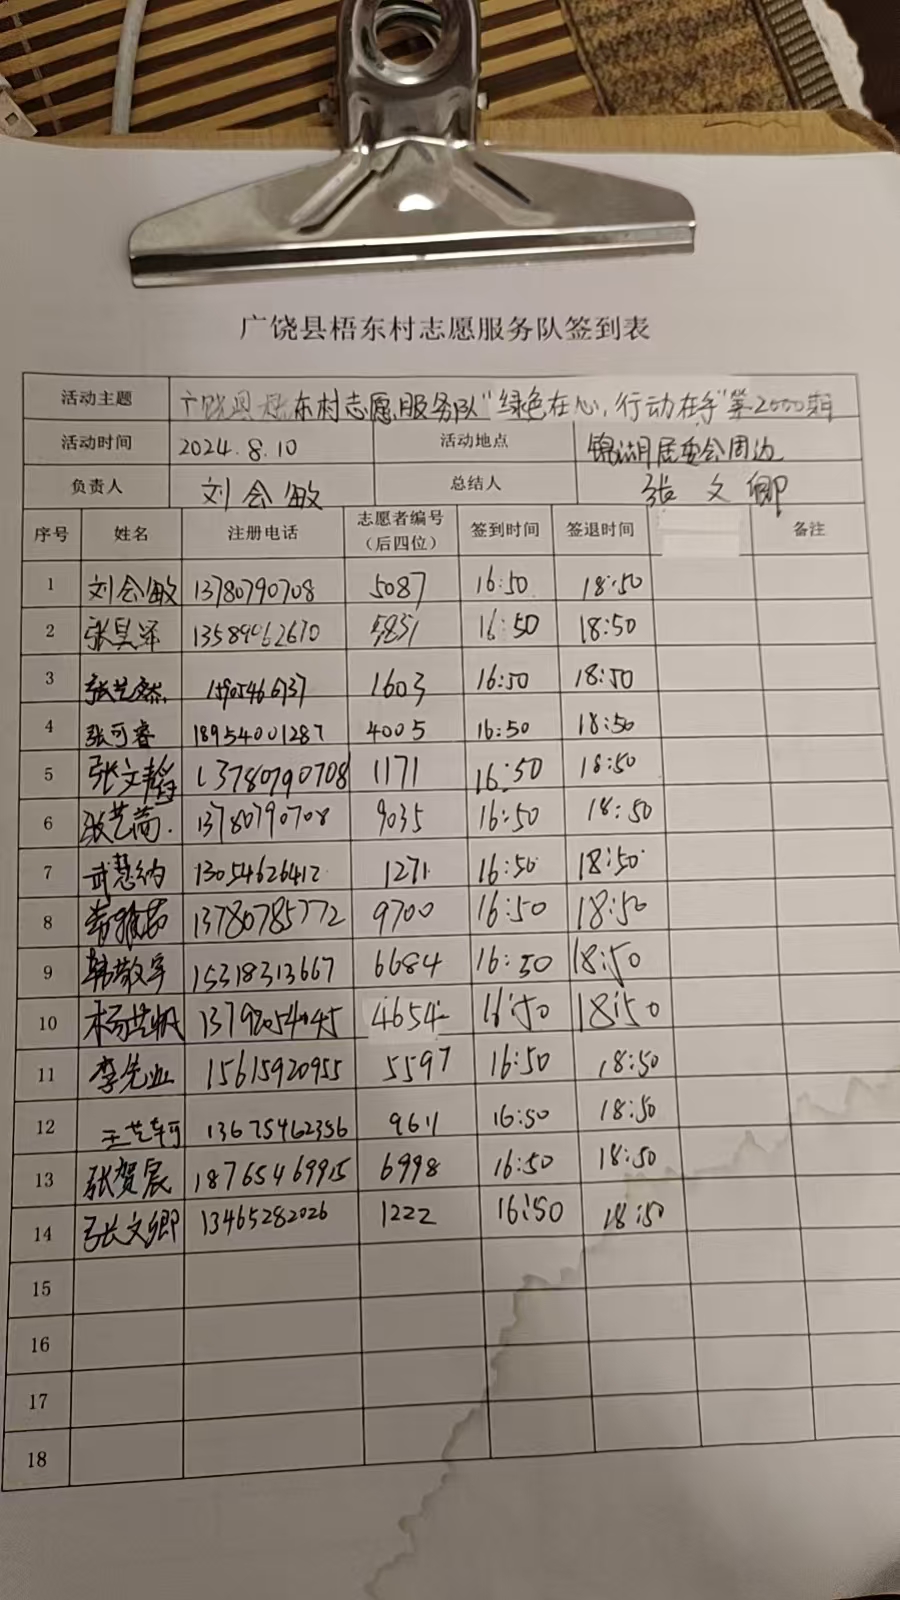 广饶县梧东村志愿服务队签到表
活动主题 广饶县梧东村志愿服务队“绿色在心,行动在手”第2000期
活动时间 2024.8.10 活动地点 锦湖居委会周边
负责人 刘会敏 总结人 张文卿
序号 姓名 注册电话 志愿者编号（后四位） 签到时间 签退时间 备注
1 刘会敏 13780790708 5087 16:50 18:50
2 张昊泽 13589062670 16:50 18:50
3 张艺燃 15905466737 1603 16:50 18:50
4 张可睿 18954001287 4005 16:50 18:50
5 张文韬 13780790708 1171 16:50 18:50
6 张艺简 13780790708 9035 16:50 18:50
7 武慧纳 13054626412 1271 16:50 18:50
8 13780785772 9700 16:50 18:50
9 韩敬宇 15318313667 6684 16:50 18:50
10 杨芸帆 13792054045 4654 16:50 18:50
11 李先业 15615920955 5597 16:50 18:50
12 王艺轲 13675462356 9611 16:50 18:50
13 张贺宸 18765469915 6998 16:50 18:50
14 张文卿 13465282026 1222 16:50 18:50
15
16
17
18